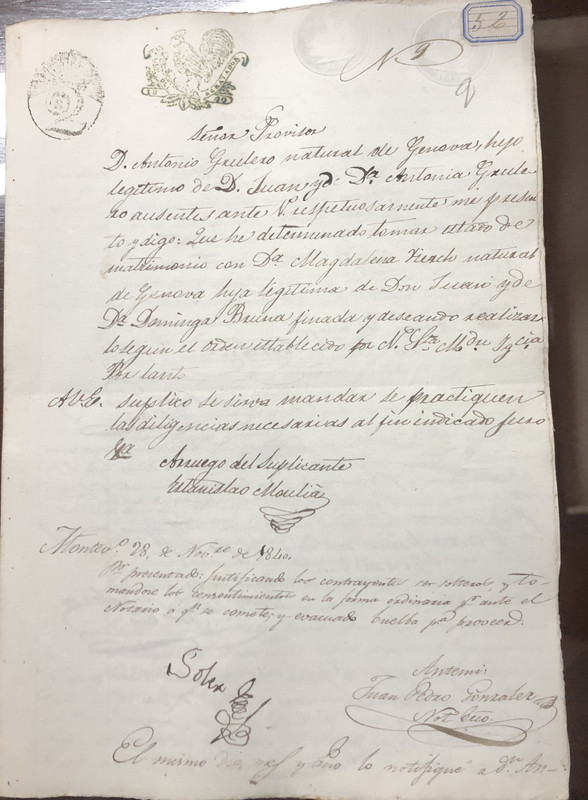 52
Nº 9
Señor Provisor
D. Antonio Grulero natural de Genova, hijo
legitimo de D. Juan y de Dª. Antonia Grule
ro ausentes, ante V. respetuosamente me presen
to y digo: Que he determinado tomar estado de
matrimonio con Dª. Magdalena natural
de Genova hija legitima de Don Juan y de
Dª. Dominga Bruna finada y deseando realizar
lo segun el orden establecido por N. Sta. Me. Ygcia
Por tanto
A V. E. suplico se sirva mandar se practiquen
las diligencias necesarias al fin indicado juro
Arruego del Suplicante
Estanislao
Montevº. 28, de Novre de 1840.
Pr presentado: justificando los contrayentes ser solteros, y to-
mandose los consentimientos en la forma ordinaria pr. ante el
Notario a qn se comete; y evacuado buelba pa. proveer.
Antemi
Juan Pedro Gonzalez
Not. Ecco.
El mismo dia, mes y año lo notifiqué a dn. An-